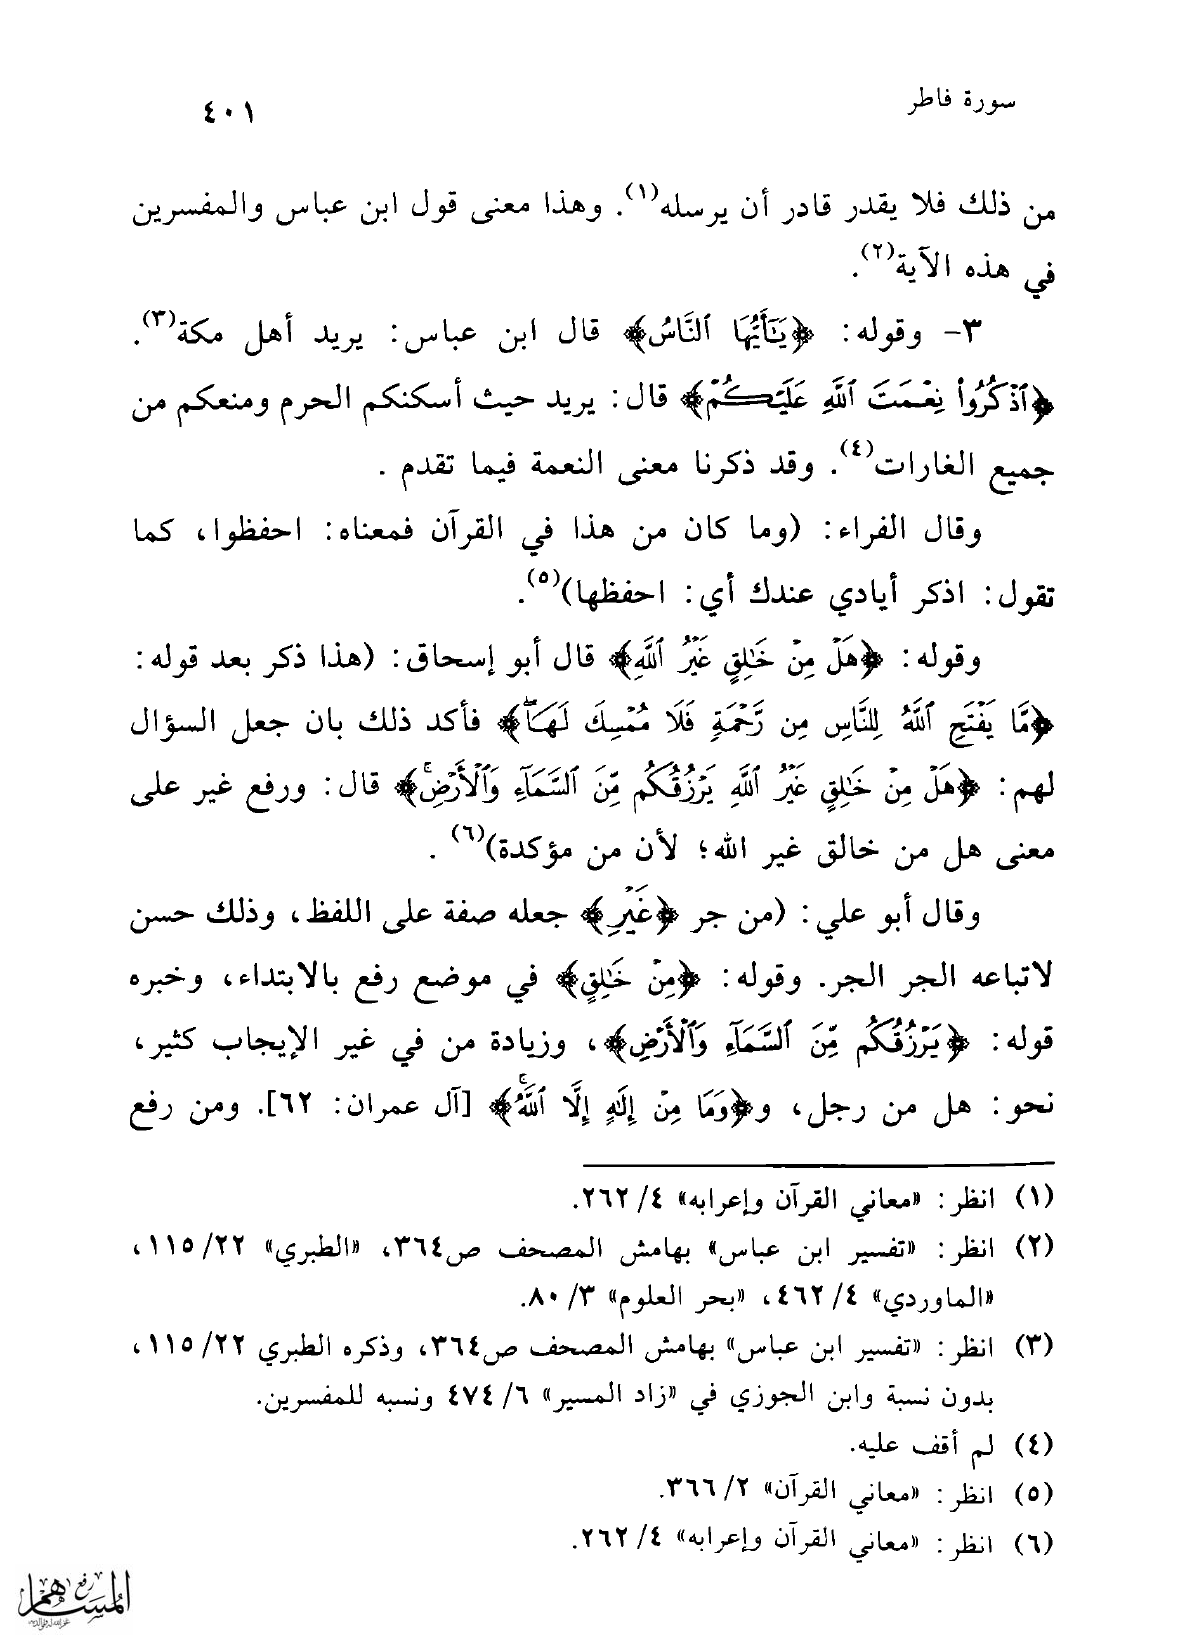 سورة فاطر
٤٠١
من ذلك فلا يقدر قادر أن يرسله(١). وهذا معنى قول ابن عباس والمفسرين
في هذه الآية(٢).
٣- وقوله: ﴿يَٰٓأَيُّهَا ٱلنَّاسُ﴾ قال ابن عباس: يريد أهل مكة(٣).
﴿ٱذْكُرُوا۟ نِعْمَتَ ٱللَّهِ عَلَيْكُمْ﴾ قال: يريد حيث أسكنكم الحرم ومنعكم من
جميع الغارات(٤). وقد ذكرنا معنى النعمة فيما تقدم .
وقال الفراء: (وما كان من هذا في القرآن فمعناه: احفظوا، كما
تقول: اذكر أيادي عندك أي: احفظها)(٥).
وقوله: ﴿هَلْ مِنْ خَٰلِقٍ غَيْرُ ٱللَّهِ﴾ قال أبو إسحاق: (هذا ذكر بعد قوله:
﴿مَّا يَفْتَحِ ٱللَّهُ لِلنَّاسِ مِن رَّحْمَةٍ فَلَا مُمْسِكَ لَهَاۖ﴾ فأكد ذلك بان جعل السؤال
لهم: ﴿هَلْ مِنْ خَٰلِقٍ غَيْرُ ٱللَّهِ يَرْزُقُكُم مِّنَ ٱلسَّمَآءِ وَٱلْأَرْضِۚ﴾ قال: ورفع غير على
معنى هل من خالق غير الله؛ لأن من مؤكدة)(٦) .
وقال أبو علي: (من جر ﴿غَيْرِ﴾ جعله صفة على اللفظ، وذلك حسن
لاتباعه الجر الجر. وقوله: ﴿مِنْ خَٰلِقٍ﴾ في موضع رفع بالابتداء، وخبره
قوله: ﴿يَرْزُقُكُم مِّنَ ٱلسَّمَآءِ وَٱلْأَرْضِ﴾، وزيادة من في غير الإيجاب كثير،
نحو: هل من رجل، و﴿وَمَا مِنْ إِلَٰهٍ إِلَّا ٱللَّهُۚ﴾ [آل عمران: ٦٢]. ومن رفع
(١) انظر: «معاني القرآن وإعرابه» ٤/ ٢٦٢.
(٢) انظر: «تفسير ابن عباس» بهامش المصحف ص٣٦٤، «الطبري» ٢٢/ ١١٥،
«الماوردي» ٤/ ٤٦٢، «بحر العلوم» ٣/ ٨٠.
(٣) انظر: «تفسير ابن عباس» بهامش المصحف ص٣٦٤، وذكره الطبري ٢٢/ ١١٥،
بدون نسبة وابن الجوزي في «زاد المسير» ٦/ ٤٧٤ ونسبه للمفسرين.
(٤) لم أقف عليه.
(٥) انظر: «معاني القرآن» ٢/ ٣٦٦.
(٦) انظر: «معاني القرآن وإعرابه» ٤/ ٢٦٢.